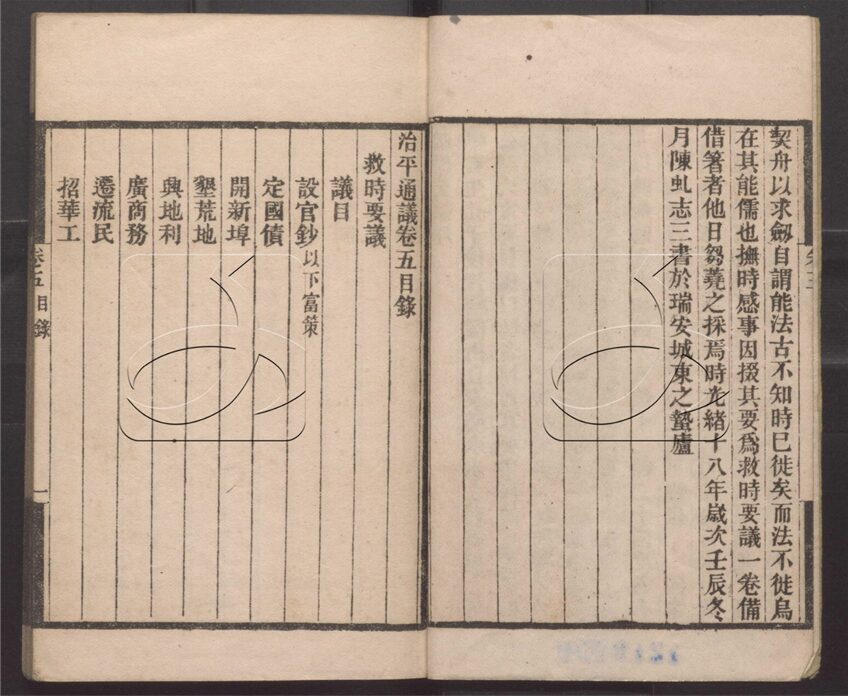 契舟以求劒自謂能法古不知時已徙矣而法不徙烏
在其能儒也撫時感事因掇其要爲救時要議一卷備
借箸者他日芻蕘之採焉時光緒十八年歲次壬辰冬
月陳虬志三書於瑞安城東之蟄廬
治平通議卷五目錄
救時要議
議目
設官鈔以下富策
定國債
開新埠
墾荒地
興地利
廣商務
遷流民
招華工
卷五目錄
一